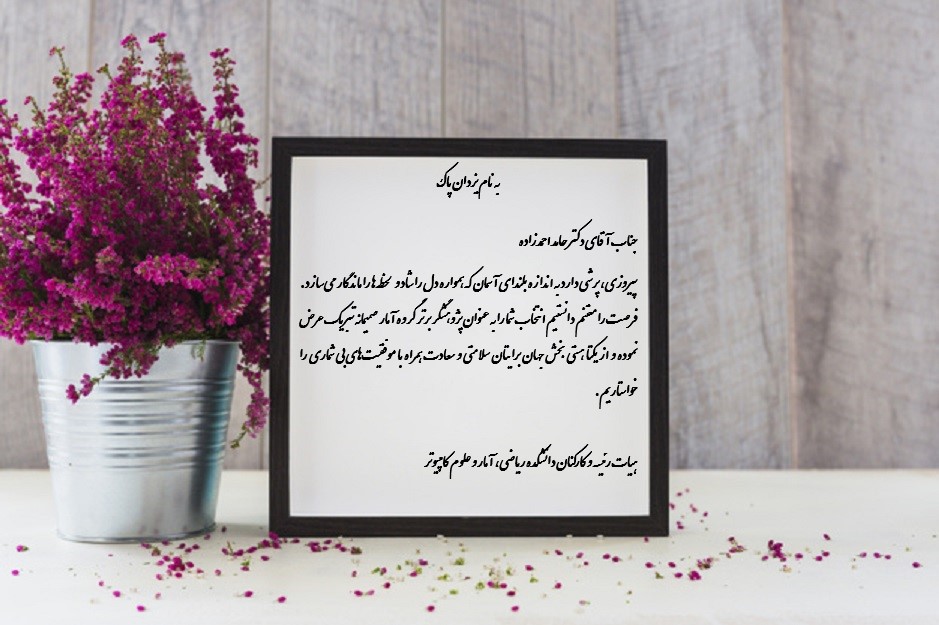 به نام یزدان پاک
جناب آقای دکتر حامد احمدزاده
پیروزی، پرشی دارد به اندازه بلندای آسمان که همواره دل را شاد و لحظه‌ها را ماندگار می سازد.
فرصت را مغتنم دانستیم انتخاب شما را به عنوان پژوهشگر برتر گروه آمار صمیمانه تبریک عرض
نموده و از یکتا هستی بخش جهان برایتان سلامتی و سعادت همراه با موفقیت‌های بی شماری را
خواستاریم.
هیات رئیسه و کارکنان دانشکده ریاضی، آمار و علوم کامپیوتر